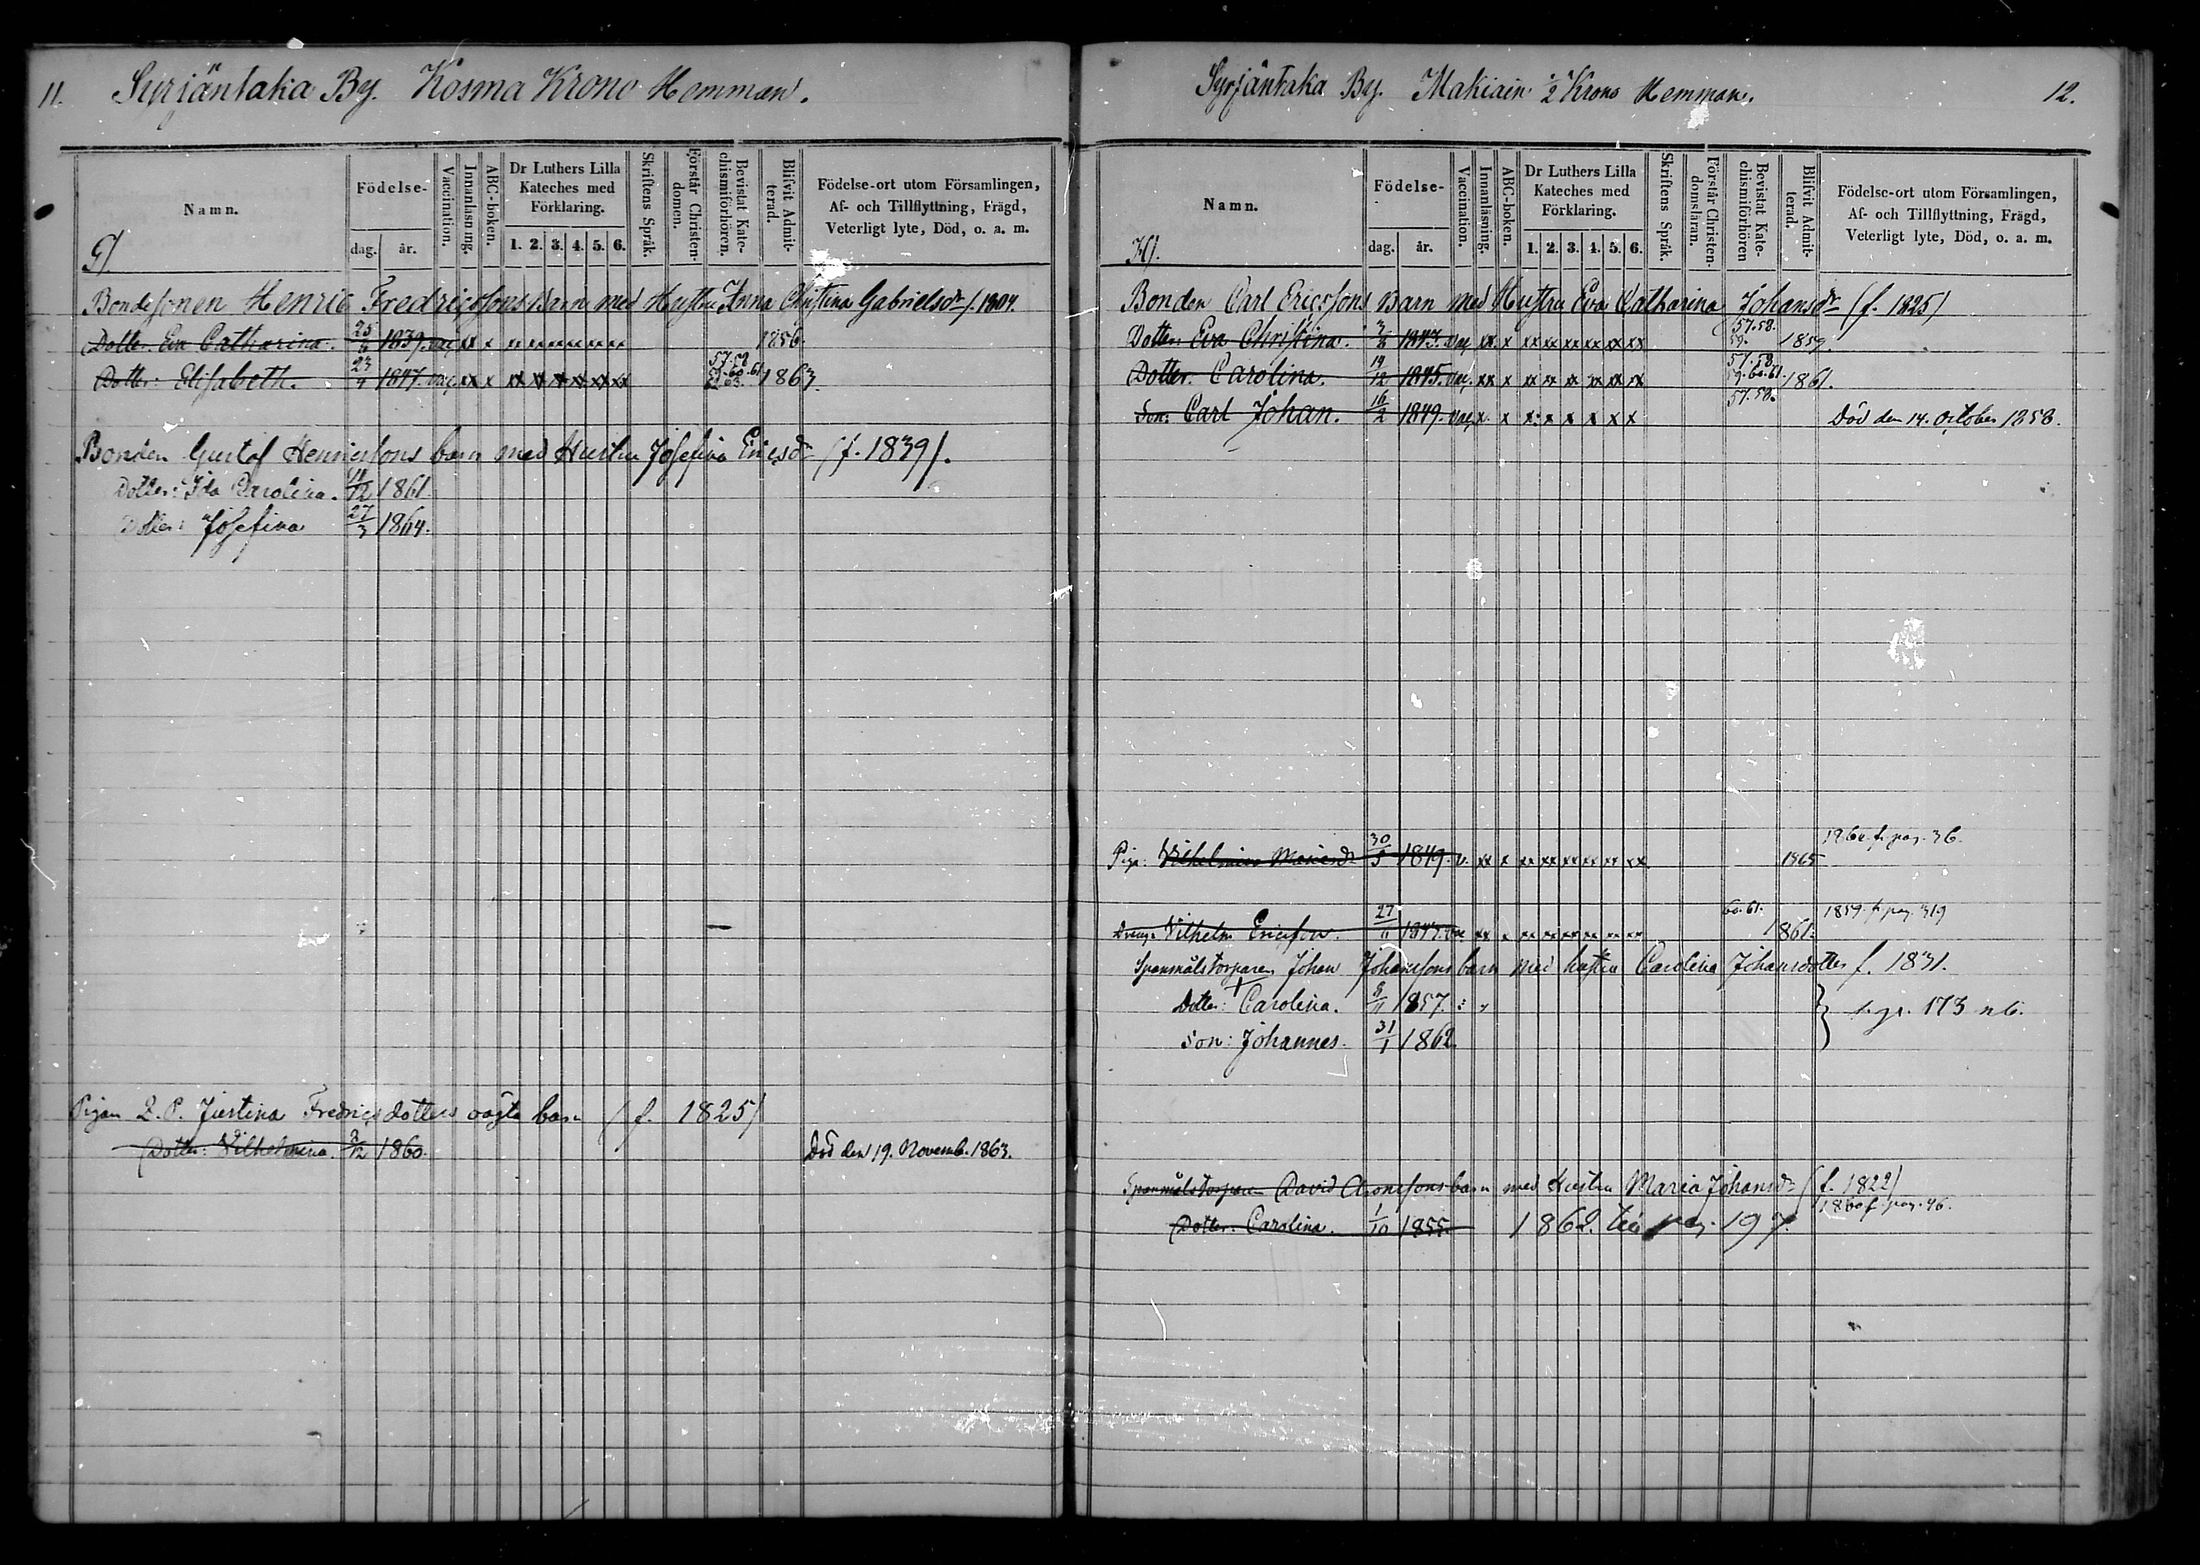 11. Syrjäntaka By. Kosma Krono Hemman.
Namn.
Födelse-
dag. år.
Vaccination.
Innanläsning.
ABC-boken.
Dr Luthers Lilla
Kateches med
Förklaring.
1. 2. 3. 4. 5. 6.
Skriftens Språk.
Förstår Christen-
domen.
Bevistat Kate-
chismiförhören.
Blifvit Admit-
terad.
Födelse-ort utom Församlingen,
Af- och Tillflyttning, Frägd,
Veterligt lyte, Död, o. a. m.
G/
Bondesonen Henric Fredricssons Barn med Hustru Anna Christina Gabrielsdr f. 1804.
Dotter. Eva Catharina. 1839. vac. 1856.
Dotter: Elisabeth. 1847. vac. xx x xx xx xx xx xx xx 1863.
Bonden Gustaf Henricssons barn med Hustru Josefina Ericsdr (f. 1839).
Dotter: Ida Carolina. 1861.
Dotter: Josefina 27/3 1864.
Pigan Justina Fredricsdotters oägta barn (f. 1825)
Dotter: Vilhelmina. 1860. Död den 19. Novemb. 1863.
Syrjäntaka By. Makiain 1/2 Krono Hemman. 12.
Namn.
Födelse-
dag. år.
Vaccination.
Innanläsning.
ABC-boken.
Dr Luthers Lilla
Kateches med
Förklaring.
1. 2. 3. 4. 5. 6.
Skriftens Språk.
Förstår Christen-
domsläran.
Bevistat Kate-
chismiförhören
Blifvit Admit-
terad.
Födelse-ort utom Församlingen,
Af- och Tillflyttning, Frägd,
Veterligt lyte, Död, o. a. m.
H/.
Bonden Carl Ericssons Barn med Hustru Eva Catharina Johansdr (f. 1825)
57. 58.
Dotter: Eva Christina. 1843. vac. xx x xx xx xx xx xx xx 59. 1859.
57. 58.
Dotter. Carolina. 19/12 1845. vac. xx x xx xx xx xx xx xx 59. 60. 61. 1861.
57. 58.
Son: Carl Johan. 16/2 1849. vac. x x x x x x x x Död den 14. October 1858.
Piga: Vilhelmina 30/5 1849. v. xx x xx xx xx xx xx xx 1865 f. pag. 36.
60. 61. 1859. f. pag. 319
Vilhelm Ericsson. 27/11 xx x xx xx xx xx xx xx 1861.
Spanmålstorparen Johan Johanssons barn med hustru Carolina Johansdotter f. 1831.
Dotter: Carolina. 8/11 1857.
173
Son: Johannes. 31/1 1862.
Spanmålstorparen David Aronssons barn med Hustru Maria Johansdr (f. 1822)
1860 f. pag. 96.
Dotter: Carolina. 1/10 1855. 1862. till pag. 197.